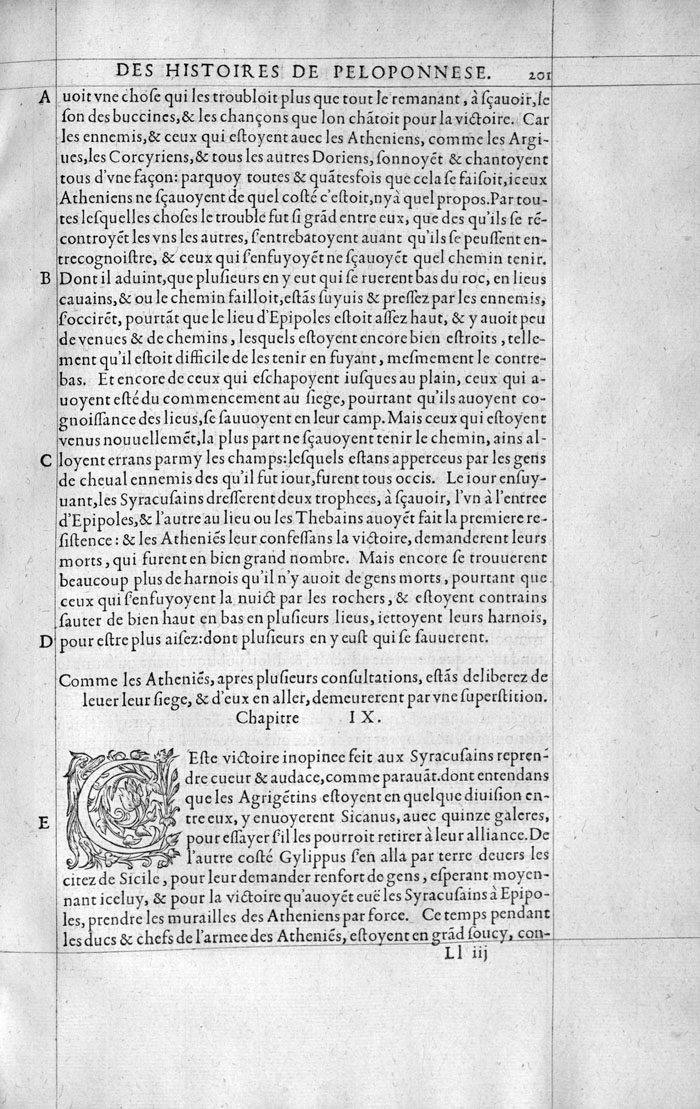 DES HISTOIRES DE PELOPONNESE. 201
A uoit vne chose qui les troubloit plus que tout le remanant, à sçauoir, le
son des buccines, & les chançons que lon chãtoit pour la victoire. Car
les ennemis, & ceux qui estoyent auec les Atheniens, comme les Argi-
ues, les Corcyriens, & tous les autres Doriens, sonnoyẽt & chantoyent
tous d'vne façon: parquoy toutes & quãtesfois que cela se faisoit, iceux
Atheniens ne sçauoyent de quel costé c'estoit, ny à quel propos. Par tou-
tes lesquelles choses le trouble fut si grãd entre eux, que des qu'ils se rẽ-
controyẽt les vns les autres, s'entrebatoyent auant qu'ils se peussent en-
trecognoistre, & ceux qui s'enfuyoyẽt ne sçauoyẽt quel chemin tenir.
B Dont il aduint, que plusieurs en y eut qui se ruerent bas du roc, en lieus
cauains, & ou le chemin failloit, estãs suyuis & pressez par les ennemis,
s'occirẽt, pourtãt que le lieu d'Epipoles estoit assez haut, & y auoit peu
de venues & de chemins, lesquels estoyent encore bien estroits, telle-
ment qu'il estoit difficile de les tenir en fuyant, mesmement le contre-
bas. Et encore de ceux qui eschapoyent iusques au plain, ceux qui a-
uoyent esté du commencement au siege, pourtant qu'ils auoyent co-
gnoissance des lieus, se sauuoyent en leur camp. Mais ceux qui estoyent
venus nouuellemẽt, la plus part ne sçauoyent tenir le chemin, ains al-
C loyent errans parmy les champs: lesquels estans apperceus par les gens
de cheual ennemis des qu'il fut iour, furent tous occis. Le iour ensuy-
uant, les Syracusains dresserent deux trophees, à sçauoir, l'vn à l'entree
d'Epipoles, & l'autre au lieu ou les Thebains auoyẽt fait la premiere re-
sistence: & les Atheniẽs leur confessans la victoire, demanderent leurs
morts, qui furent en bien grand nombre. Mais encore se trouuerent
beaucoup plus de harnois qu'il n'y auoit de gens morts, pourtant que
ceux qui s'enfuyoyent la nuict par les rochers, & estoyent contrains
sauter de bien haut en bas en plusieurs lieus, iettoyent leurs harnois,
D pour estre plus aisez: dont plusieurs en y eust qui se sauuerent.
Comme les Atheniẽs, apres plusieurs consultations, estãs deliberez de
leuer leur siege, & d'eux en aller, demeurerent par vne superstition.
Chapitre IX.
CEste victoire inopinee feit aux Syracusains repren-
dre cueur & audace, comme parauãt. dont entendans
que les Agrigẽtins estoyent en quelque diuision en-
E tre eux, y enuoyerent Sicanus, auec quinze galeres,
pour essayer s'il les pourroit retirer à leur alliance. De
l'autre costé Gylippus s'en alla par terre deuers les
citez de Sicile, pour leur demander renfort de gens, esperant moyen-
nant iceluy, & pour la victoire qu'auoyẽt euë les Syracusains à Epipo-
les, prendre les murailles des Atheniens par force. Ce temps pendant
les ducs & chefs de l'armee des Atheniẽs, estoyent en grãd soucy, con-
Ll iij